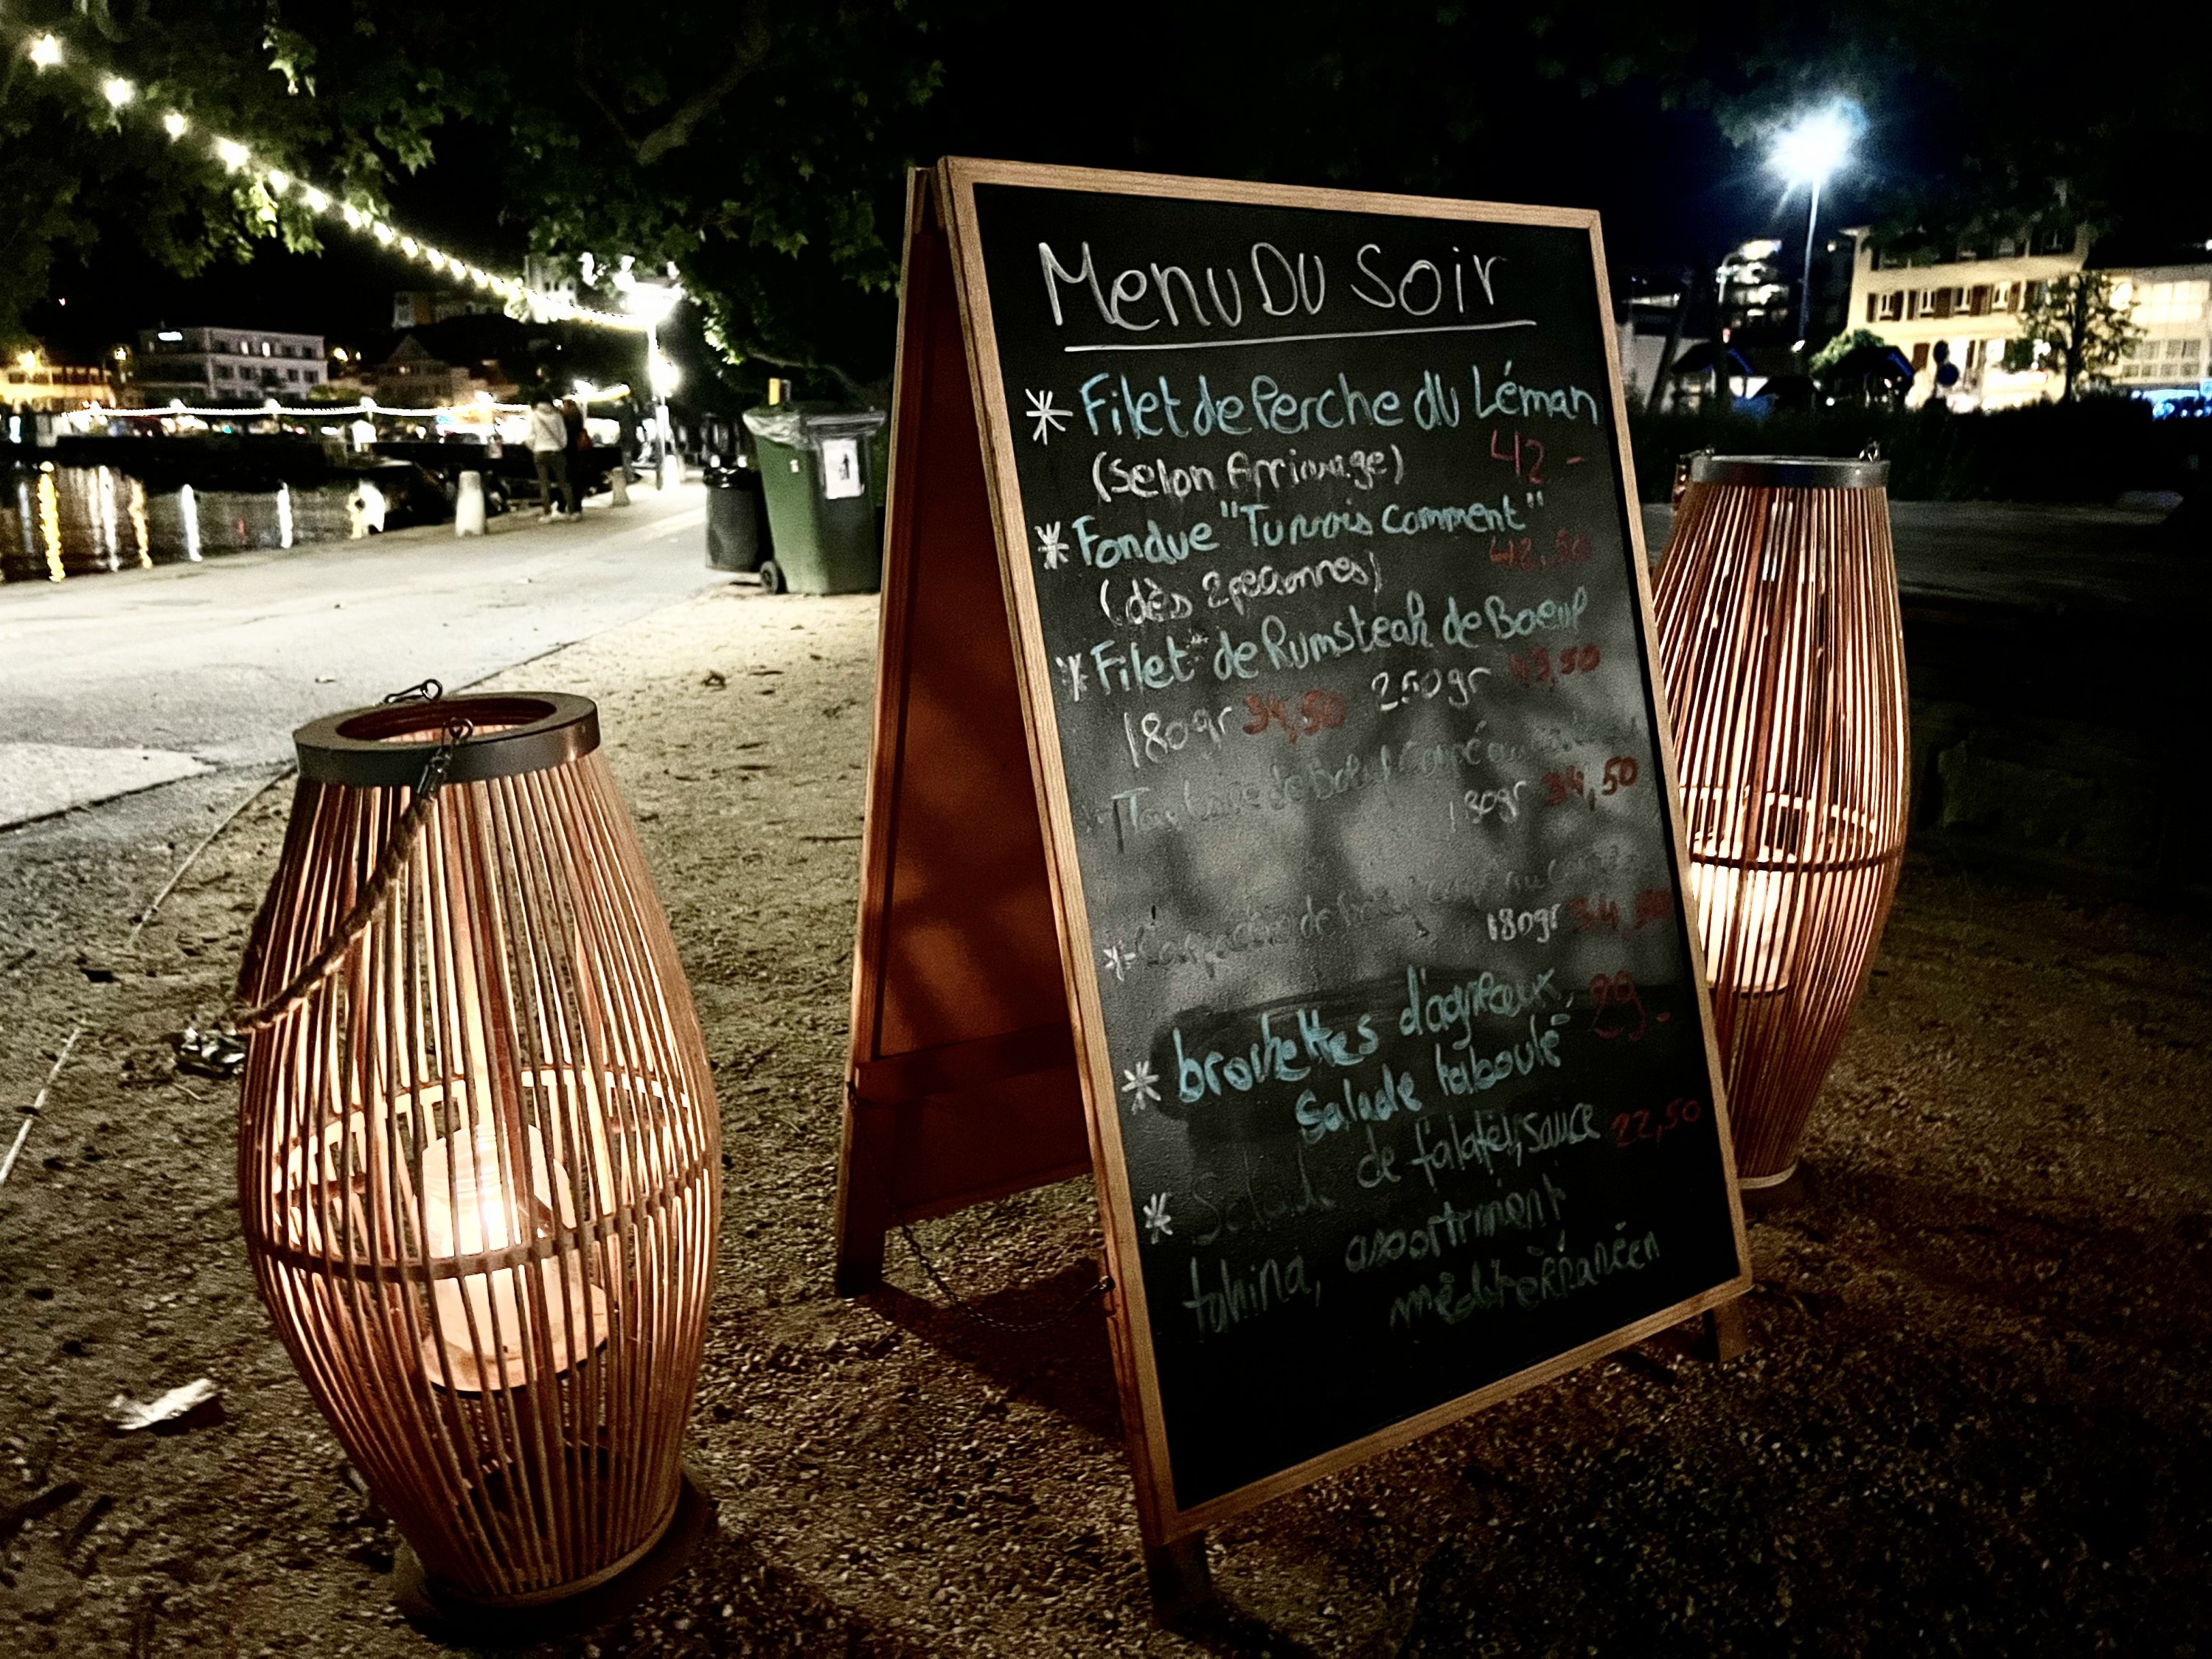 Menu Du Soir
* Filet de Perche du Léman
(selon Arrivage) 42.-
* Fondue "Tu vois comment"
(dès 2 personnes) 42,50
* Filet de Rumsteak de Boeuf
180gr 34,50 250gr 43,50
de Boeuf coupé au
180gr 34,50
* de coupé au
180gr 34,50
* brochettes d'agneaux, 29.-
salade taboulé
* Salade de falafel, sauce 22,50
tahina, assortiment
méditérranéen